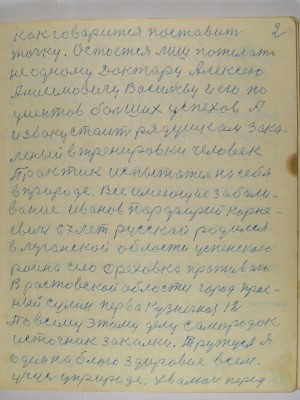 2
как говарится поставит
точку. Остоется лиш пожелат
не одному Доктару Алексею
Васильеву и его по
циентов болших успехов А
зака-
леный в тренировки человек
Практик испытател на себя
в природе. Все имеющие забале-
вание Иванов Парфирий Корне-
евич 67 лет русской родился
в Луганской области успенского
раина село Ореховка проживать
В растовской области город Крас-
ней сулин перва кузнечная 12
По всему этому делу самородок
источник закалки. Тружуся Я
один на благо здоровие всем.
учус уприроде, хвамаг перед